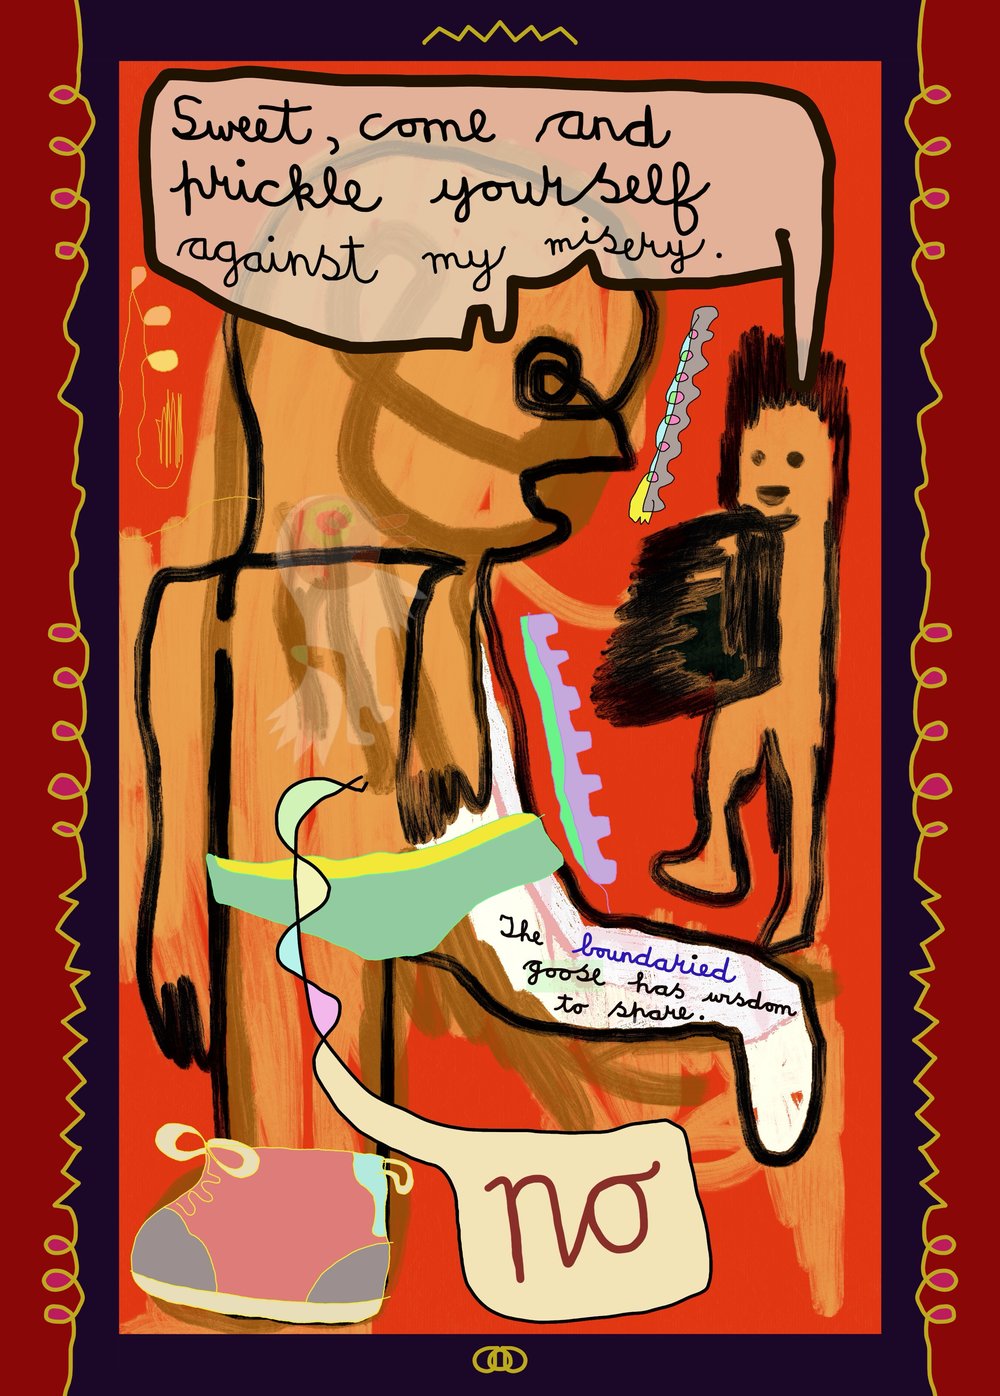 Sweet, come and
prickle yourself
against my misery.
The boundaried
goose has wisdom
to spare.
no